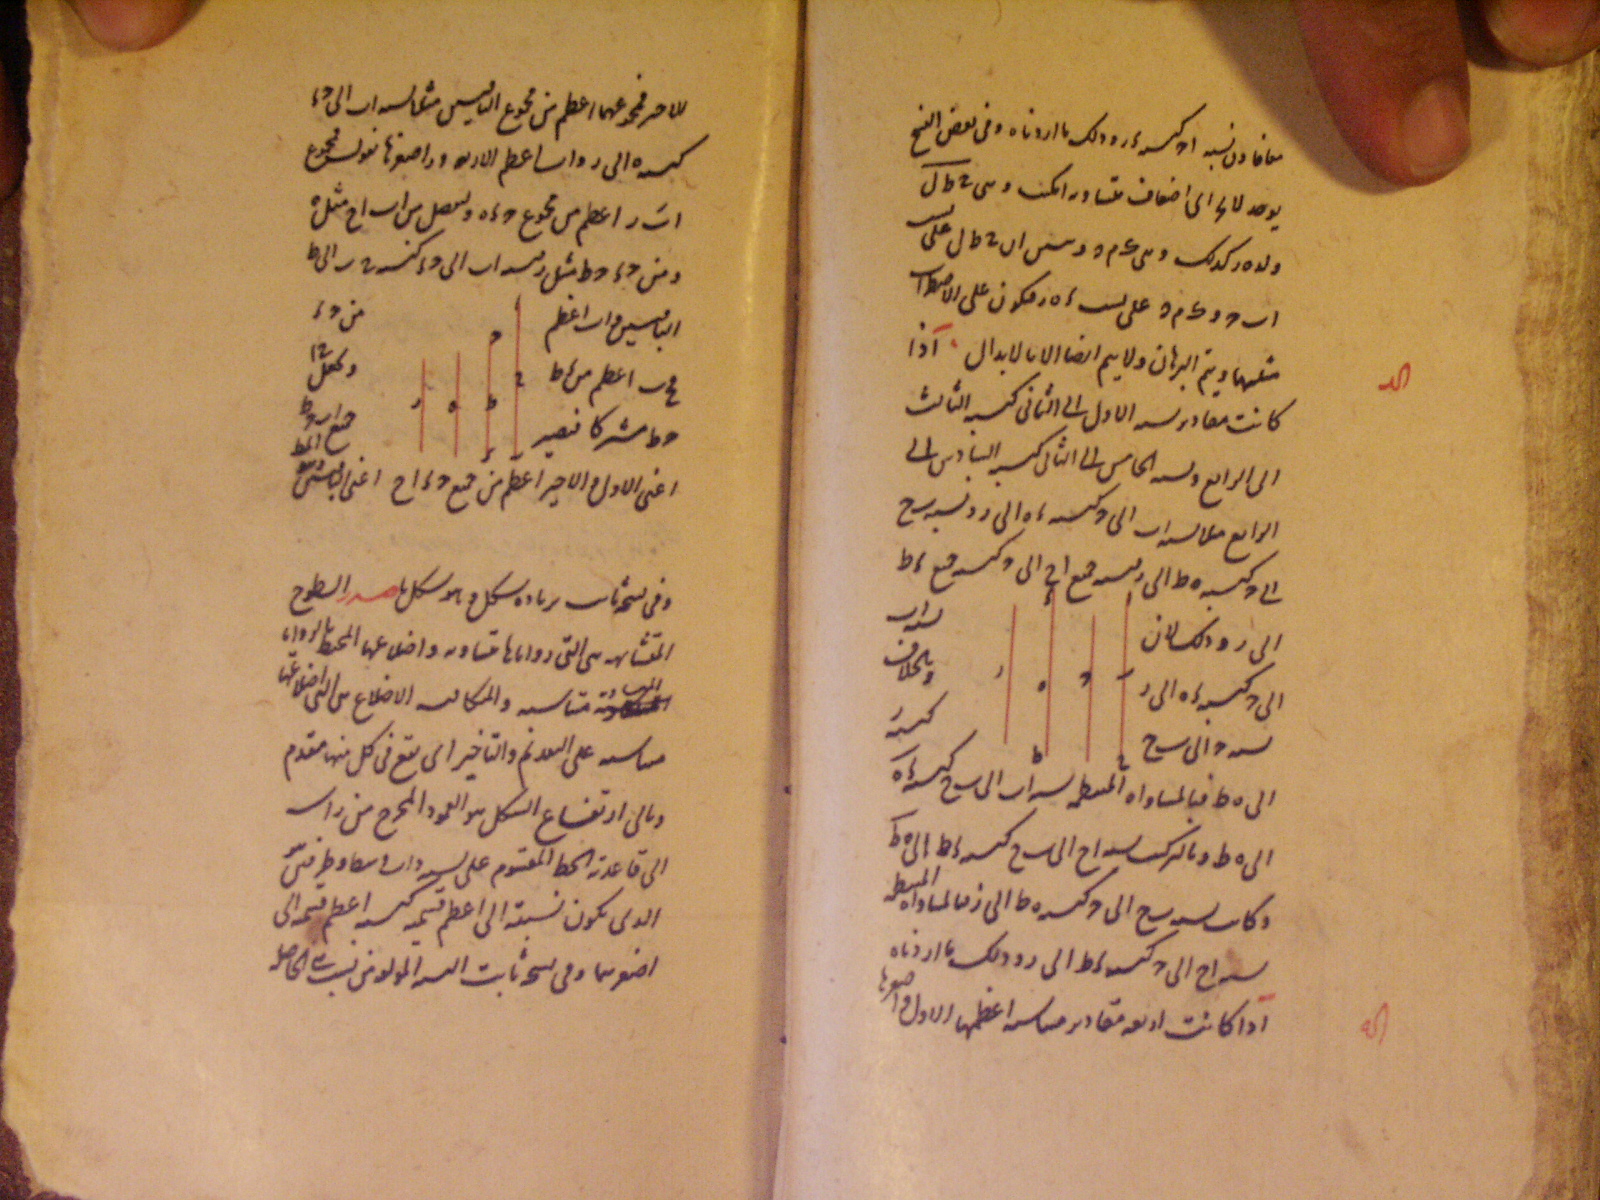 معا فاذن نسبة ا ح كنسبة ء ر وذلك ما اردناه وفى بعض النسخ
يوجد لا ب ء اى اضعاف متساوية امكنت وهى ح ط ك ل
كذلك وهى
على
متيهما ويتم البرهان ولا يتم ايضا الا بالابدال اذا
الد
كانت مقادير نسبة الاول الى الثانى كنسبة الثالث
الى الرابع ونسبة الخامس الى الثانى كنسبة السادس الى
الرابع مثلا نسبة اب الى ح كنسبة ء ه الى ر ونسبة ب ح
الى ح كنسبة ه ط الى ر فنسبة جميع ا ح الى ح كنسبة جميع ء ط
الى ر وذلك لان نسبة اب
الى ح كنسبة ء ه الى ر وبالخلاف
نسبة ح الى ب ح كنسبة ر
الى ه ط فبالمساواة المنتظمة نسبة اب الى ب ح كنسبة ء ه
الى ه ط وبالتركيب نسبة ا ح الى ب ح كنسبة ء ط الى ه ط
وكانت نسبة ب ح الى ح كنسبة ه ط الى ر فبالمساواة المنتظمة
نسبة ا ح الى ح كنسبة ء ط الى ر وذلك ما اردناه
اذا كانت اربعة مقادير متناسبة اعظمها الاول واصغرها
الكه
الاخير فمجموعهما اعظم من مجموع الباقيين مثلا نسبة اب الى ح ء
كنسبة ه الى ر واب اعظم الاربعة و ر اصغرها نقول فمجموع
اب ر اعظم من مجموع ح ء ه ونفصل من اب ا ح مثل ه
ومن ح ء ح ط مثل ر فنسبة اب الى ح ء كنسبة ح ب الى ط ء
الباقيين واب اعظم من ح ء
فح ب اعظم من ء ط ونجعل ا ح
ح ط مشتركا فيصير جميع اب ح ط
اعنى الاول والاخير اعظم من جميع ح ء ا ح اعنى الباقيين
وفى نسخة ثابت بزيادة شكل وهو شكل صدر السطوح
المتشابهة هى التى زواياها متساوية واضلاعها المحيطة بالزوايا
المتساوية متناسبة والمتكافية الاضلاع هى التى اضلاعها
متناسبة على التقديم والتاخير اى يقع فى كل منهما مقدم
وتالى ارتفاع الشكل هو العمود المخرج من راسه
الى قاعدته الخط المقسوم على نسبة ذات وسط وطرفين هو
الذى يكون نسبته الى اعظم قسميه كنسبة اعظم قسميه الى
اصغرهما وفى نسخة ثابت النسبة المؤلفة من نسب هى الحاصلة